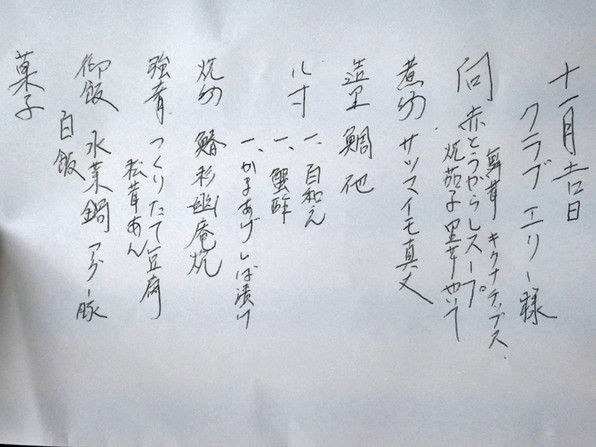 十一月吉日
クラブ エリー様
舞茸 キクナチップス
向 赤とうがらしスープ
焼茄子 里芋
煮物 サツマイモ真丈
造里 鯛 他
八寸 一、白和え
一、蟹酢
一、かまあげしば漬け
焼物 鰆 杉幽庵焼
強肴 つくりたて豆腐
松茸あん
御飯 水菜鍋
白飯
菓子